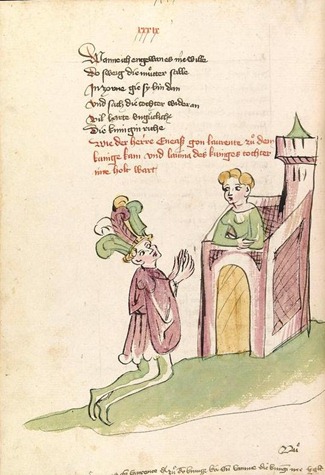 xxxix
Wanne ich engewan es nie wille
Do sweig die mütter stille
In zorne gie sy hin dan
Vnd sach die tochter wider an
Vil harte
Die kunigin riche
wie der herre Eneas gon laurente zü dem
kunige kam vnd lauina des kuniges tochter
ime holt wart